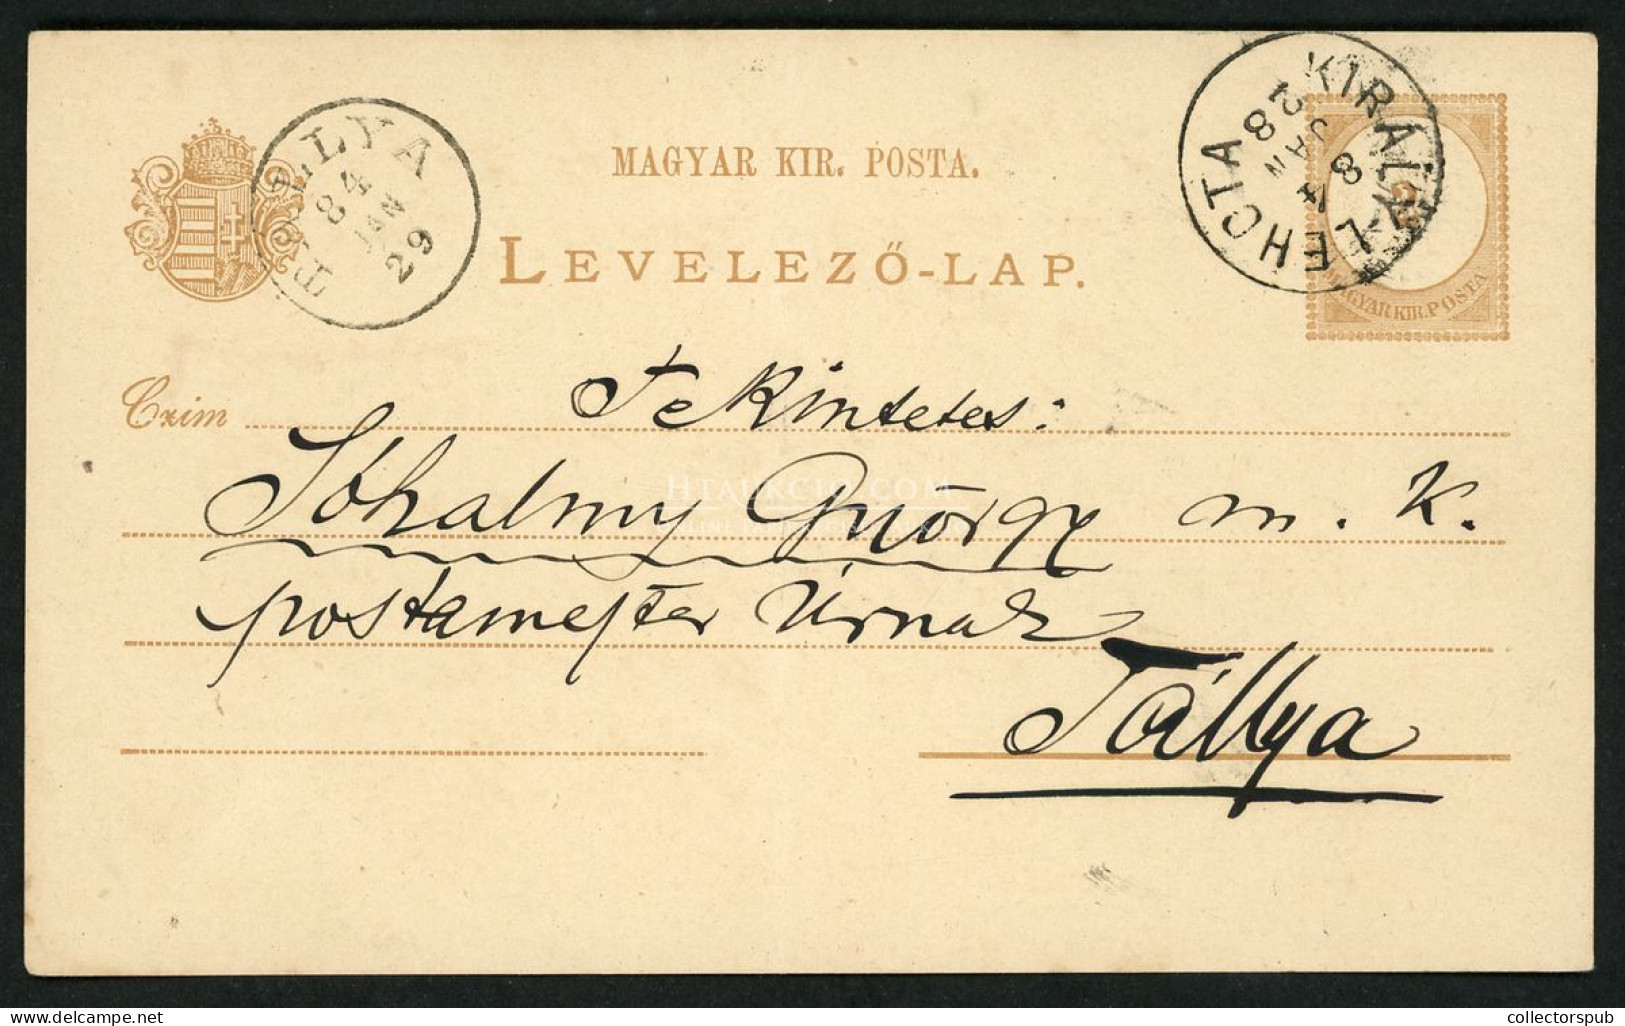 MAGYAR KIR. POSTA.
LEVELEZŐ-LAP.
TÁLLYA
84
JAN
29
KIRÁLY-LEHOTA
84
JAN
28
2
MAGYAR KIR. POSTA
Czim
Tekintetes:
Sóhalmy György m. k.
postamester Úrnak
Tállya
HTAUKCIO.COM
collectorspub